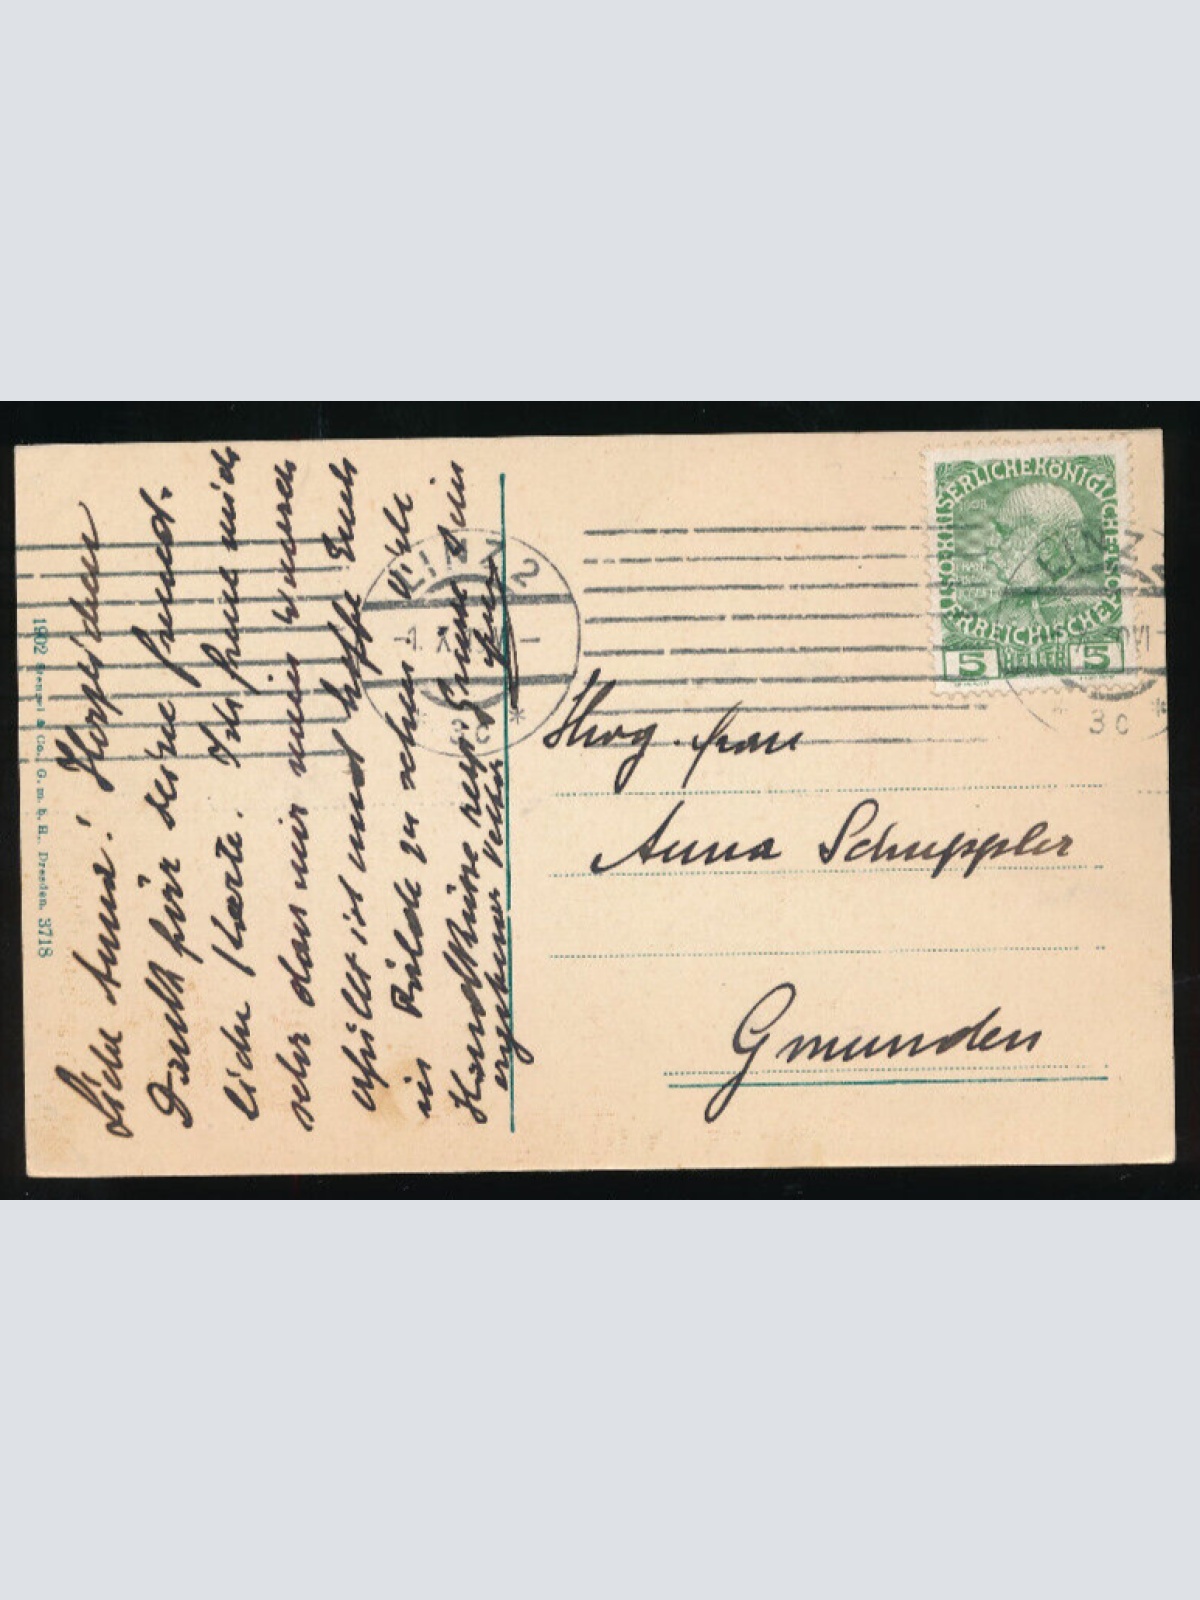 Liebe Anna! Herzlichen
Dank für deine freund-
liche Karte. Ich freue mich
sehr dass mir mein Wunsch
erfüllt ist und hoffe Euch
in Bälde zu sehen. Viele
Handküsse
ergebener Vetter
1902 Stengel & Co., G. m. b. H., Dresden. 3718
LINZ 2
KAISERLICHEKÖNIGLICHE
ÖSTERREICHISCHE
5 HELLER 5
LINZ
3c
Anna Schuppler
Gmunden